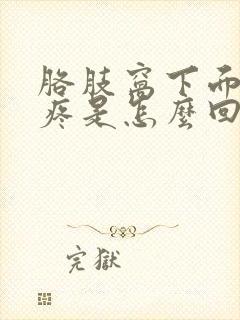 胳肢窩下而
疼是怎麼回
完獄